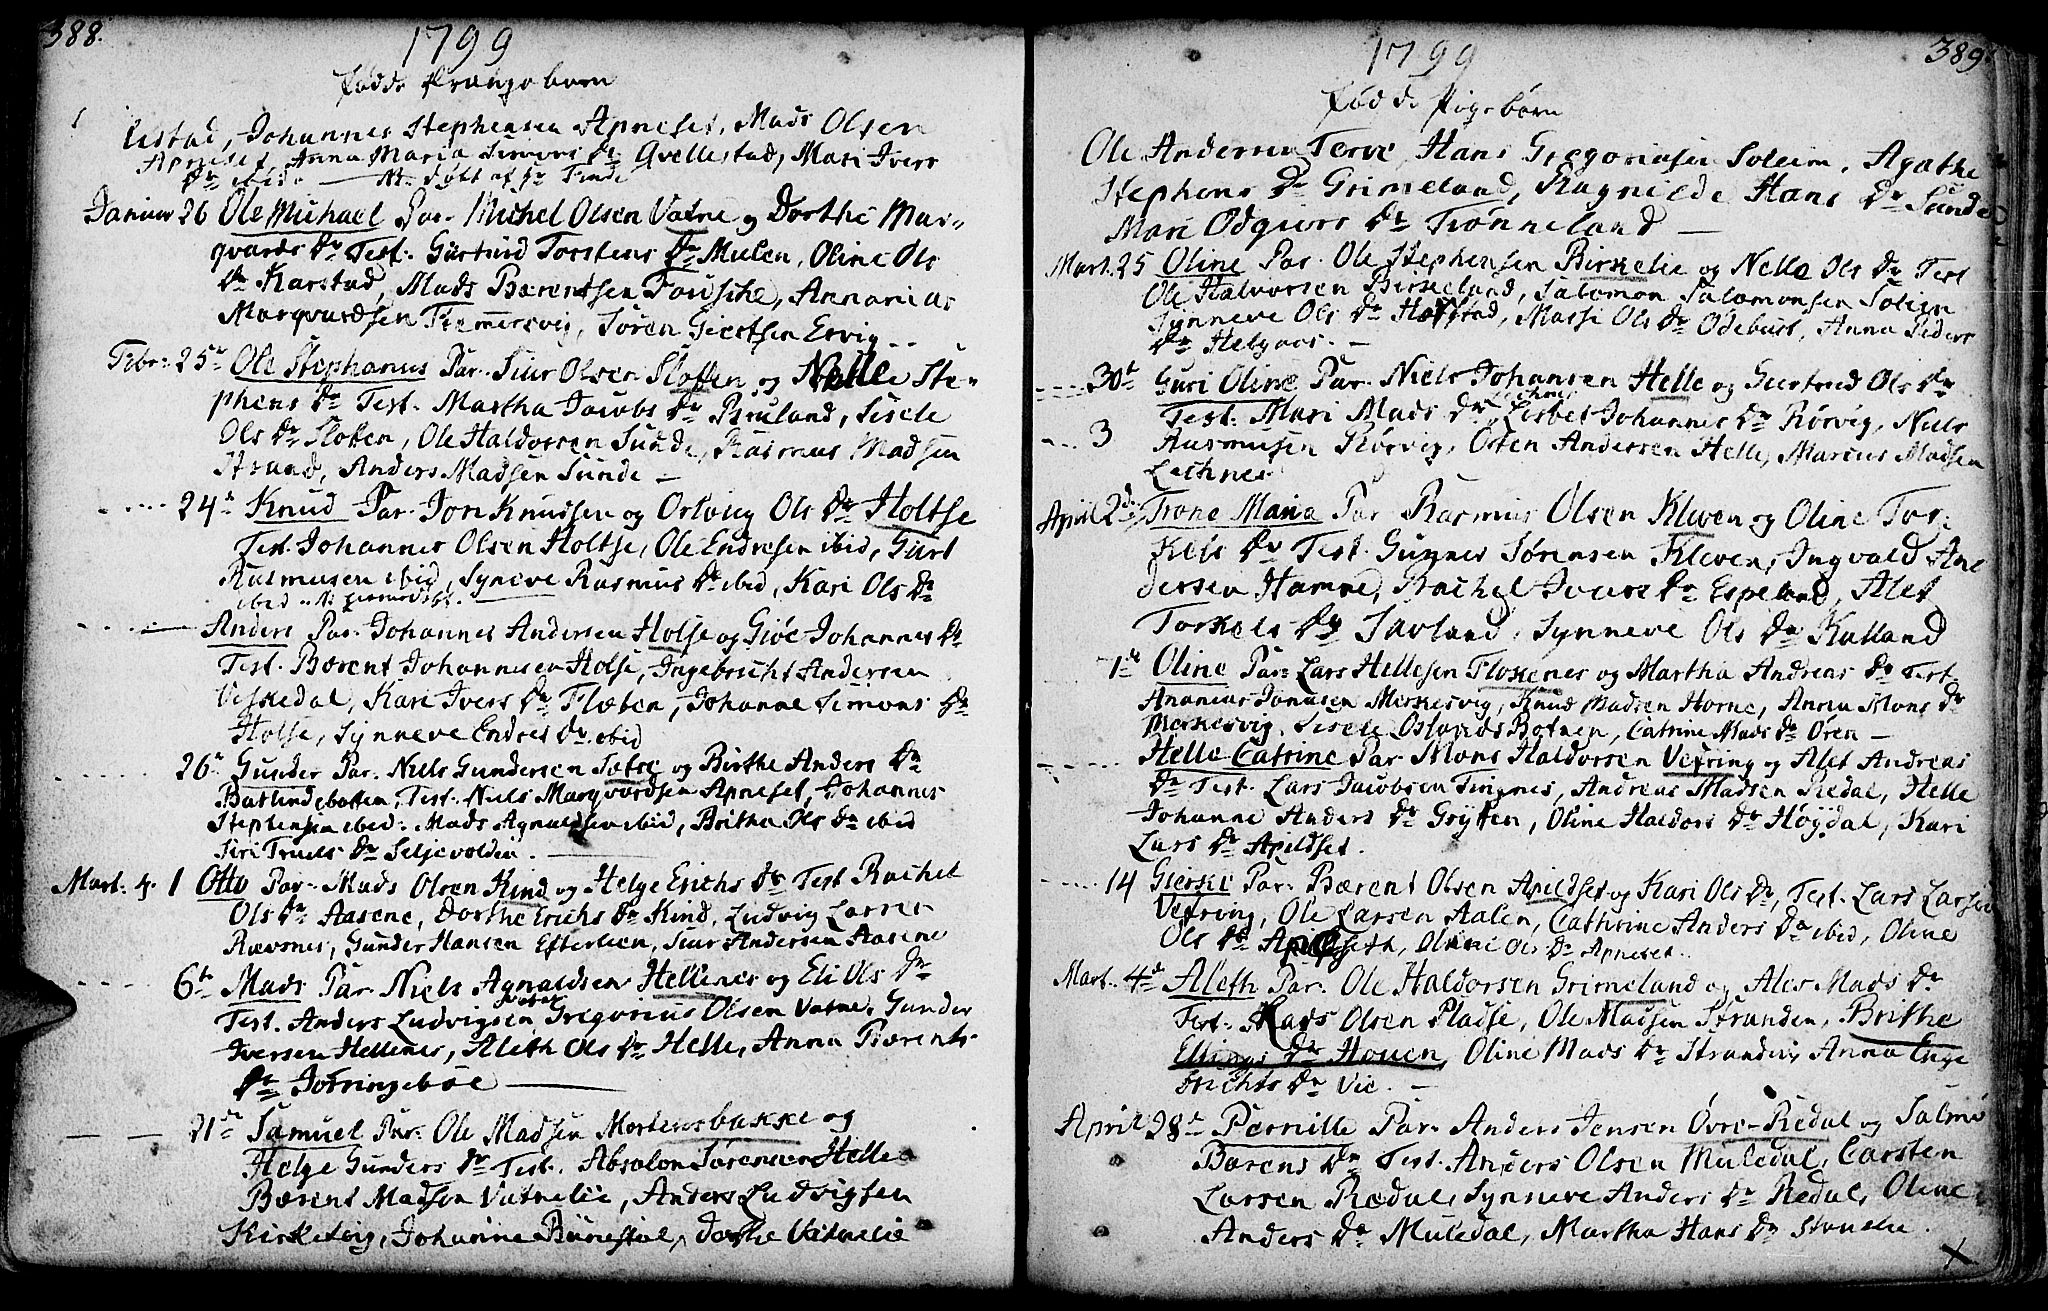 388.
1799
fødde Drenge børn
Johannes Stephensen Apneset, Mads Olsen
Apneset, Anna Maria Simons Dr Qvellestad, Mari Ivers
Dr ibid.
Januar 26 Ole Michael Par. Michel Olsen Vatne og Dorthe Mar-
qvards Dr Test. Giertrud Torstens Dr Mulen, Oline Ols
Dr Karstad, Mads Bærentsen Fauskke, Annanias
Marqvardsen Remmersvig, Søren Giertsen Ervig
Febr: 25de Ole Stephanus Par. Siur Olsen Slotten og Nelle Ste-
phens Dr Test. Martha Jacobs Dr Bruland, Sisele
Ols Dr Slotten, Ole Haldorsen Sunde, Rasmus Madsen
Strand, Anders Madsen Sunde
24de Knud Par. Jon Knudsen og Oslaug Ols Dr Holtse
Test. Johannes Olsen Holtse, Ole Endresen ibid, Giert
Rasmusen ibid, Synneve Rasmus Dr ibid, Kari Ols Dr
ibid
Anders Par. Johannes Andersen Holse og Giøe Johannes Dr
Test. Bærent Johannesen Holse, Ingebrecht Andersen
Veskedal, Kari Ivers Dr Flæten, Johanne Simons Dr
Holse, Synneve Endres Dr ibid
26de Gunder Par. Niels Gundersen Sætre og Birthe Anders Dr
Barlindbotten, Test. Niels Marqvardsen Apneset, Johannes
Stephensen ibid: Mads Agnaldsen ibid, Britha Ols Dr ibid
Siri Truels Dr Seljevolden.
Mart. 1 Otto Par. Mads Olsen Kind og Helge Erichs Dr Test Rachel
Ols Dr Aasene, Dorthe Erichs Dr Kind, Ludvig Larsen
Rævsnes, Gunder Hansen Efterleen, Siur Andersen Aasene
6te Mads Par. Niels Agnaldsen Hellenes og Eli Ols Dr
Test. Anders Ludvigsen, Gregorius Olsen Vatne, Gunder
Iversen Hellenes, Aleth Ols Dr Helle, Anna Bærents
Dr Jotringebøe
21de Samuel Par. Ole Madsen Mortensbakke og
Helge Gunders Dr Test. Absolon Sørensen Helle
Bærent Madsen Vatnelie, Anders Ludvigsen
Kirketeig, Johanne Bunestøl, Dorthe Vatnelie
389.
1799
fødde Pigebørn
Ole Andersen Terve, Hans Gregoriusen Soleim, Agathe
Stephens Dr Grimeland, Ragnilde Hans Dr Sunde
Mari Odgiers Dr Trønneland
Mart. 25 Oline Par. Ole Stephensen Birkelie og Nelle Ols Dr Test
Ole Halvorsen Birkeland, Salomon Salomonsen Solem
Synneve Ols Dr Hafstad, Massi Ols Dr Odebust, Anna Peders
Dr Helgaas.
30te Guri Oline Par. Niels Johansen Helle og Giertrud Ols Dr
Test. Mari Mads Dr Lechnes Lisbet Johannes Dr Rørvig, Niels
3 Rasmusen Rørvig, Østen Andersen Helle, Marcus Madsen
Lechnes
April 2de Trone Maria Par Rasmus Olsen Kleven og Oline Tor-
kels Dr Test. Gunner Sørensen Kleven, Ingvald An-
dersen Hamne, Rachel Ivers Dr Espeland, Alet
Torkels Dr Savland, Synneve Ols Dr Kalland
1de Oline Par. Lars Hellesen Flokenes og Martha Andreas Dr Test.
Ananias Jonasen Merkesvig, Knud Madsen Horne, Anna Mons Dr
Merkesvig, Sisele Botnen, Catrine Mads Dr Øren
Helle Catrine Par Mons Haldorsen Vefring og Alet Andreas
Dr Test. Lars Jacobsen Tingnes, Andreas Madsen Redal, Helle
Johanne Anders Dr Grytten, Oline Haldors Dr Høydal, Kari
Lars Dr Apildset.
14 Gierske Par. Bærent Olsen Apildset og Kari Ols Dr, Test. Lars Larsen
Vefring, Ole Larsen Aalen, Cathrine Anders Dr ibid, Oline
Ols Dr Apildseth, Oline Ols Dr Apneset.
Mart. 4de Aleth Par. Ole Haldorsen Grimeland og Alet Mads Dr
Test. Mads Olsen Pladse, Ole Madsen Stranden, Brithe
Ellings Dr Houen, Oline Mads Dr Stranden, Anna Enge
brichts Dr Vie.
April 28de Pernille Par. Anders Jensen Øvre-Redal og Salmø
Bærens Dr Test. Anders Olsen Muledal, Carsten
Larsen Rædal, Synneve Anders Dr Redal, Oline
Anders Dr Muledal, Martha Hans Dr